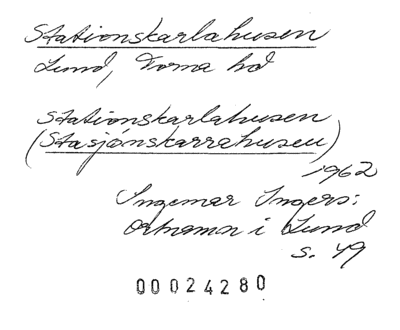 Stationskarlahusen
Lund, Torna hd
Stationskarlahusen
(Stasjónskarrahusen)
1962
Ingemar Ingers:
Ortnamn i Lund
s. 49
00024280